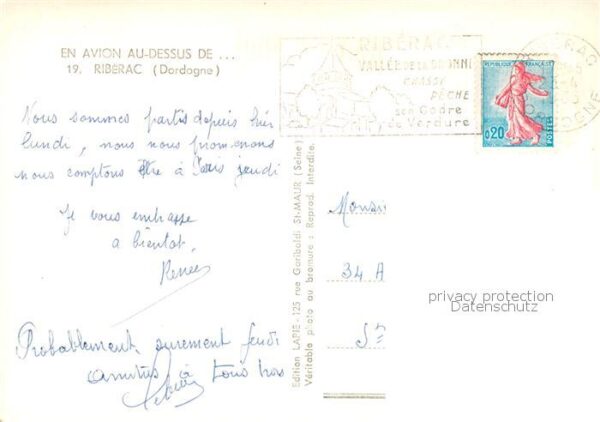 EN AVION AU-DESSUS DE ...
19. RIBÉRAC (Dordogne)
Nous sommes partis depuis hier
lundi, nous nous promenons
nous comptons être à Paris jeudi
Je vous embrasse
a bientot,
Renée
Probablement, surement jeudi
amitiés à tous trois
RIBÉRAC
VALLÉE DE LA DRONNE
CHASSE
PÊCHE
son Cadre
de Verdure
RÉPUBLIQUE FRANÇAISE
0,20
POSTES
DORDOGNE
Edition LAPIE - 125 rue Garibaldi ST-MAUR (Seine)
Véritable photo au bromure : Reprod. Interdite.
34 A
privacy protection
Datenschutz